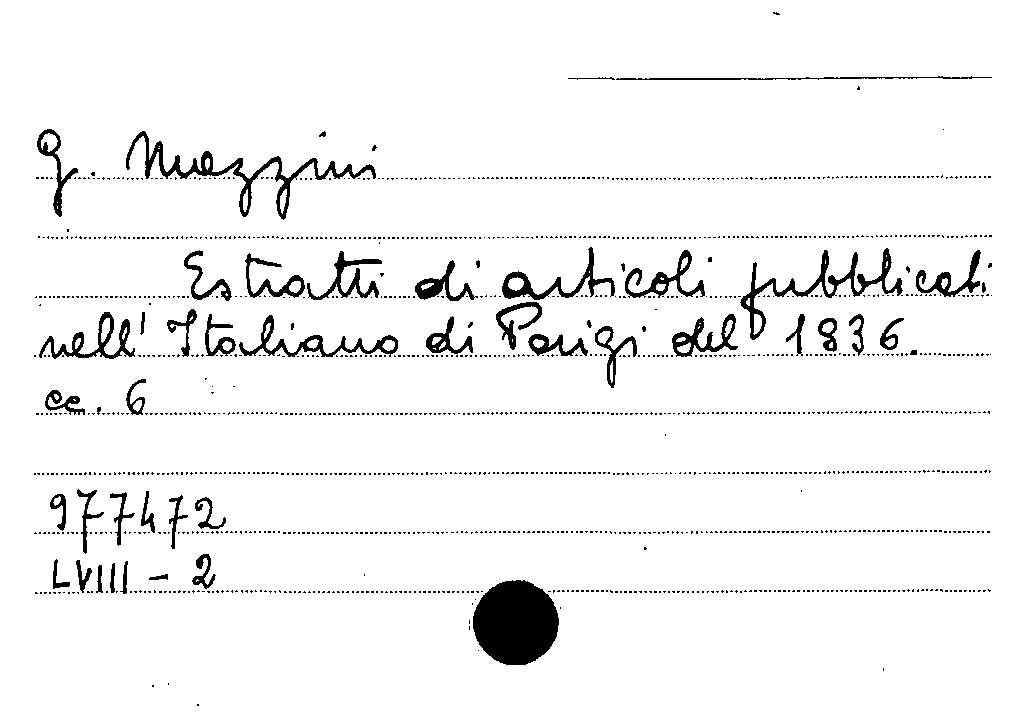 G. Mazzini
Estratti di articoli pubblicati
nell' Italiano di Parigi del 1836.
cc. 6
977472
LVIII - 2